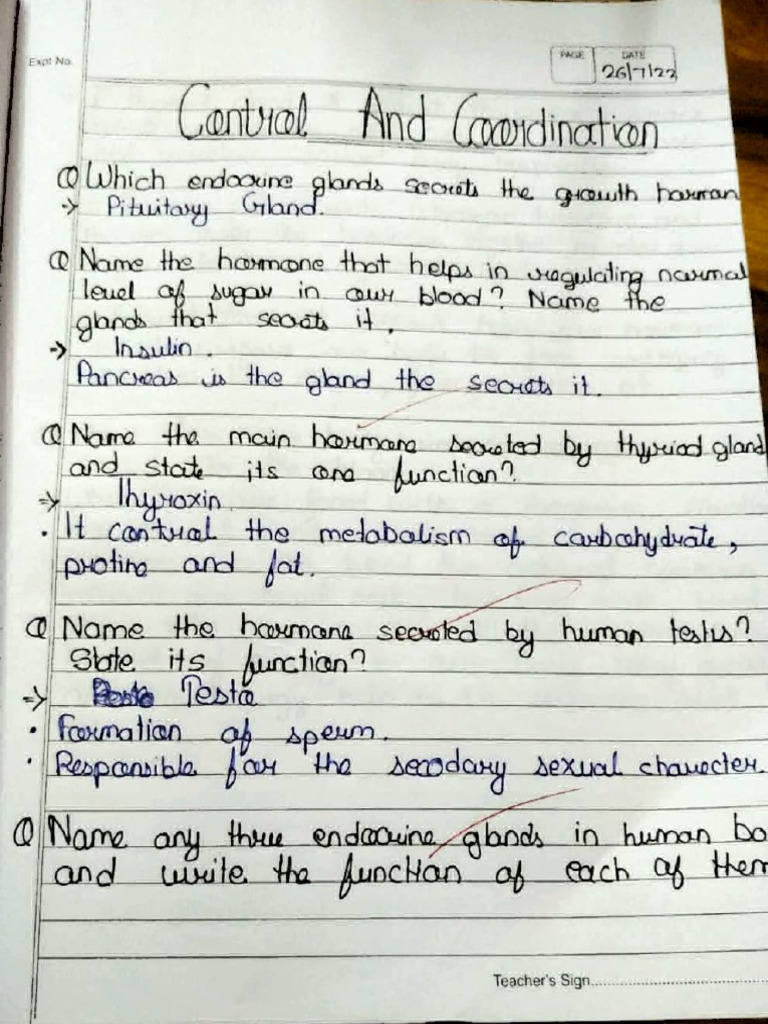 Expt No.
PAGE
DATE
26/7/22
Control And Coordination
Q Which endocrine glands secrets the growth harman
→ Pituitary Gland.
Q Name the harmone that helps in regulating normal
level of sugar in our blood? Name the
glands that secrets it.
→ Insulin.
Pancreas is the gland the secrets it.
Q Name the main harmone secreted by thyriod gland
and state its one function?
→ Thyroxin
• It control the metabolism of carbohydrate,
protine and fat.
Q Name the harmone secreted by human testis?
State its function?
→ Testo
• Formation of sperm.
• Responsible for the secodary sexual charecter.
Q Name any three endocrine glands in human bo
and write the function of each of them
Teacher's Sign.